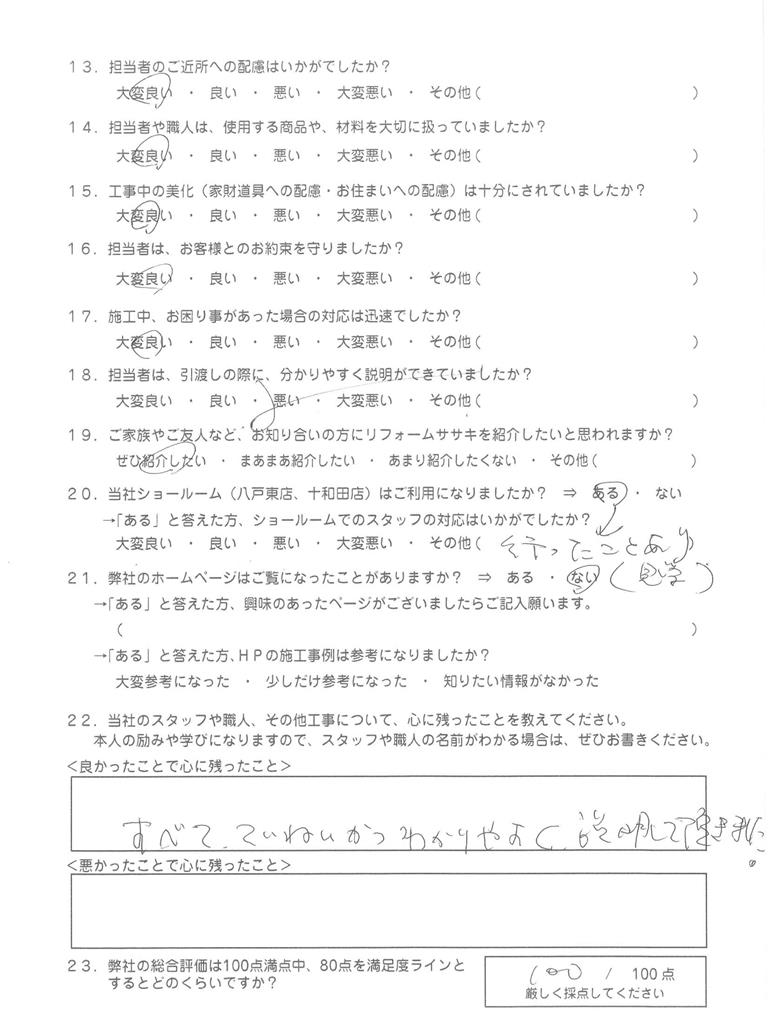 13．担当者のご近所への配慮はいかがでしたか？
大変良い ・ 良い ・ 悪い ・ 大変悪い ・ その他（ ）
14．担当者や職人は、使用する商品や、材料を大切に扱っていましたか？
大変良い ・ 良い ・ 悪い ・ 大変悪い ・ その他（ ）
15．工事中の美化（家財道具への配慮・お住まいへの配慮）は十分にされていましたか？
大変良い ・ 良い ・ 悪い ・ 大変悪い ・ その他（ ）
16．担当者は、お客様とのお約束を守りましたか？
大変良い ・ 良い ・ 悪い ・ 大変悪い ・ その他（ ）
17．施工中、お困り事があった場合の対応は迅速でしたか？
大変良い ・ 良い ・ 悪い ・ 大変悪い ・ その他（ ）
18．担当者は、引渡しの際に、分かりやすく説明ができていましたか？
大変良い ・ 良い ・ 悪い ・ 大変悪い ・ その他（ ）
19．ご家族やご友人など、お知り合いの方にリフォームササキを紹介したいと思われますか？
ぜひ紹介したい ・ まあまあ紹介したい ・ あまり紹介したくない ・ その他（ ）
20．当社ショールーム（八戸東店、十和田店）はご利用になりましたか？ ⇒ ある ・ ない
→「ある」と答えた方、ショールームでのスタッフの対応はいかがでしたか？
大変良い ・ 良い ・ 悪い ・ 大変悪い ・ その他（ 行ったことあり
21．弊社のホームページはご覧になったことがありますか？ ⇒ ある ・ ない （見学）
→「ある」と答えた方、興味のあったページがございましたらご記入願います。
（ ）
→「ある」と答えた方、ＨＰの施工事例は参考になりましたか？
大変参考になった ・ 少しだけ参考になった ・ 知りたい情報がなかった
22．当社のスタッフや職人、その他工事について、心に残ったことを教えてください。
本人の励みや学びになりますので、スタッフや職人の名前がわかる場合は、ぜひお書きください。
＜良かったことで心に残ったこと＞
すべて、ていねいかつわかりやすく、説明して頂きました。
＜悪かったことで心に残ったこと＞
23．弊社の総合評価は100点満点中、80点を満足度ラインと
するとどのくらいですか？
100 / 100点
厳しく採点してください